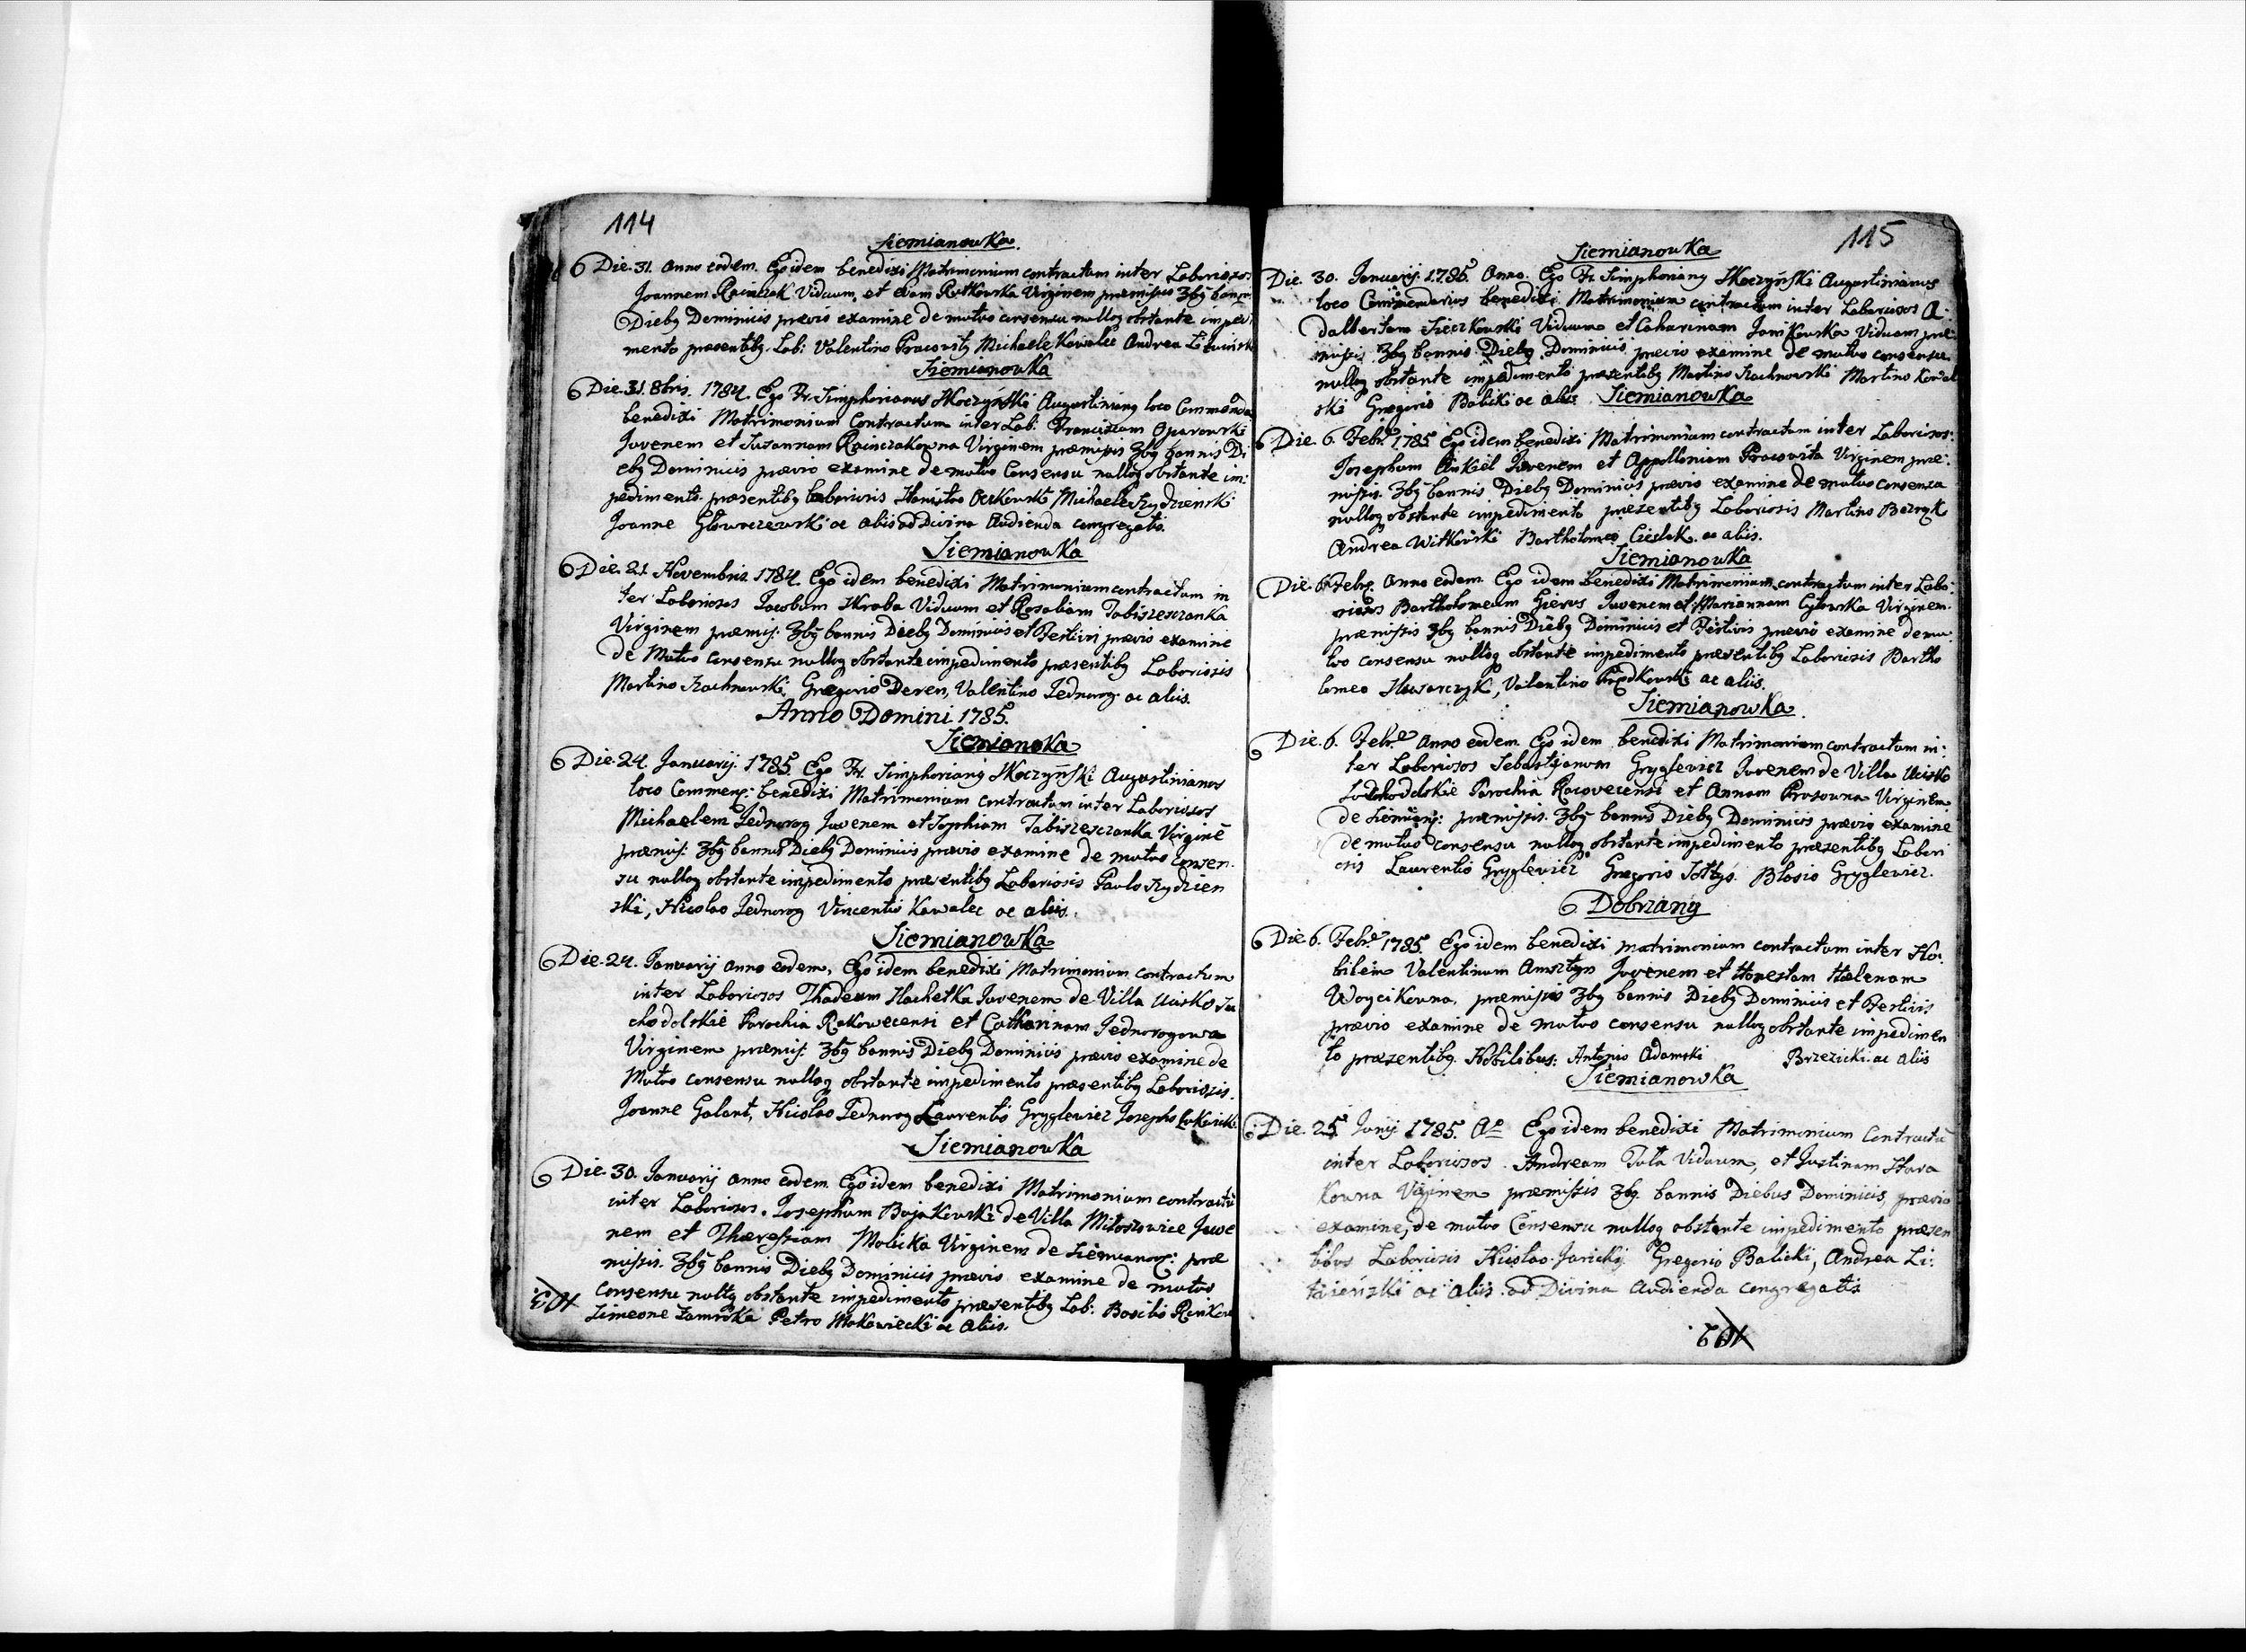 114
Siemianowka
Die. 31. Anno eodem. Ego idem benedixi Matrimonium contractum inter Laboriosos
Joannem Rainczak Viduum, et Evam Rutkowska Virginem præmissis 3bg bannis
Dieby Dominicis prævio examine de mutuo consensu nullog obstante impedi
mento præsentiby. Lab: Valentino Pracovity Michaele Kowalec Andrea Litwinsk
Siemianowka
Die. 31. 8bris. 1784. Ego Fr. Simphorianus Skoczyński Augustiniang loco Commenda
benedixi Matrimonium Contractum inter Lab: Franciscum Oparowski
Juvenem et Susannam Rainczakowna Virginem præmissis 3bg bannis Di
eby Dominicis prævio examine de mutuo Consensu nullog obstante im:
pedimento præsentiby laboriosis Stanislao Michaele Szydzienski
Joanne Głowczewski ac aliis ad Divina Audienda congregatis.
Siemianowka
Die. 21. Novembris 1784. Ego idem benedixi Matrimonium contractum in
ter Laboriosos Jacobum Skraba Viduum et Rosaliam Tabiszeszczanka
Virginem præmis: 3bg bannis Dieby Dominicis et Festivi prævio examine
de Mutuo consensu nullog obstante impedimento præsentiby Laboriosis
Martino Szachnowski, Gregorio Deren, Valentino Jednorog ac aliis.
Anno Domini 1785.
Siemianoka
Die. 24. Januarij. 1785. Ego Fr. Simphoriang Skoczyński Augustinianus
loco Commeng: benedixi Matrimonium contractum inter Laboriosos
Michaelem Jednorog Juvenem et Sophiam Tabiszeszczanka Virginē
præmis: 3bg bannis Dieby Dominicis prævio examine de mutuo consen
su nullog obstante impedimento præsentiby Laboriosis Paulo Szydzien
ski, Nicolao Jednorog Vincentio Kawalec ac aliis.
Siemianowka
Die. 24. Januarij anno eodem, Ego idem benedixi Matrimonium contractum
inter Laboriosos Thadeum Machetka Juvenem de Villa Uiisko Su
chodolskie Parochia Rakowecensi et Catharinam Jednorogowa
Virginem præmis: 3bg bannis Dieby Dominicis prævio examine de
Mutuo consensu nullog obstante impedimento præsentiby Laboriosis.
Joanne Galant, Nicolao Jednorog Laurentio Gryglewicz Josepho
Siemianowka
Die. 30. Januarij anno eodem. Ego idem benedixi Matrimonium contractū
inter Laboriosos. Josephum Bujakowski de Villa Miłoszowice Juve
nem et Theressiam Malicka Virginem de Siemianog: præ
missis. 3bg bannis Dieby Dominicis prævio examine de mutuo
consensu nullog obstante impedimento præsentiby Lab: Basilio
Simeone Zamroka Petro Makowiecki ac aliis.
103
115
Siemianowka
Die. 30. Januarij. 1785. Anno. Ego Fr. Simphoriang Skoczyński Augustinianus
loco Commendarius benedixi Matrimonium contractum inter Laboriosos A:
dalbertum Sieczkowski Viduum et Catharinam Janikowska Viduam præ
missis 3bg bannis Dieby Dominicis prævio examine de mutuo consensu
nullog obstante impedimento præsentiby Martino Szachnowski Martino Kowal
ski Gregorio Balicki ac aliis. Siemianowka
Die. 6. Febr. 1785 Ego idem benedixi Matrimonium contractum inter Laboriosos:
Josephum Ankiel Juvenem et Appolloniam Pracovita Virginem præ:
missis. 3bg bannis Dieby Dominicis prævio examine de mutuo consensu
nullog obstante impedimento præsentiby Laboriosis Martino
Andrea Witkowski Bartholomeo Cieslak ac aliis.
Siemianowka
Die. 6. Febr. Anno eodem. Ego idem benedixi Matrimonium contractum inter Labo:
riosos Bartholomeum Gierus Juvenem et Mariannam Virginem.
præmissis 3bg bannis Dieby Dominicis et Festivis prævio examine de mu
tuo consensu nullog obstante impedimento præsentiby Laboriosis Bartho
lomeo Slusarczyk, Valentino Prędkowski ac aliis.
Siemianowka
Die. 6. Febr. Anno eodem. Ego idem benedixi Matrimonium contractum in:
ter Laboriosos Sebastjanum Gryglewicz Juvenem de Villa Uiisko
Parochia Racovecensi et Annam Prosowna Virginem
de Siemiang: præmissis. 3bg bannis Dieby Dominicis prævio examine
de mutuo consensu nullog obstante impedimento præsentiby Labori
osis Laurentio Gryglewicz Gregorio Sołtys. Blasio Gryglewicz.
Dobrzany
Die 6. Febr. 1785. Ego idem benedixi matrimonium contractum inter No:
bilem Valentinum Amsztyn Juvenem et Honestam Helenam
Woycikowna, præmissis 3bg bannis Dieby Dominicis et Festivis
prævio examine de mutuo consensu nullog obstante impedimen
to præsentiby. Nobilibus: Antonio Adamski Brzezicki ac aliis
Siemianowka
Die. 25 Junij 1785. Ao Ego idem benedixi Matrimonium Contractū
inter Laboriosos. Andream Tuta Viduum, et Justinam Stara
kowna Virginem præmissis 3bg. bannis Diebus Dominicis, prævio
examine, de mutuo Consensu nullog obstante impedimento præsen
tibus Laboriosis Nicolao Janicki Gregorio Balicki, Andrea Li:
twienski ac aliis ad Divina Audienda congregatis.
102